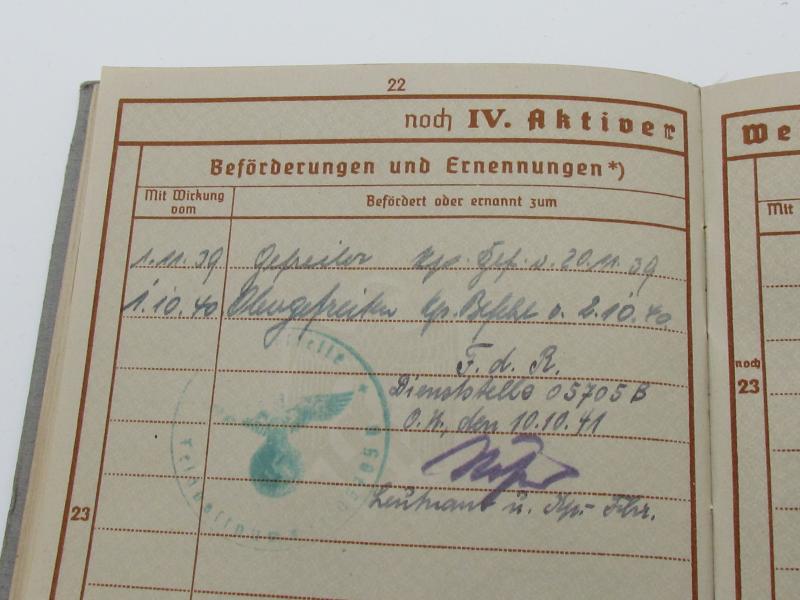 22
noch IV. Aktiver
We
Beförderungen und Ernennungen*)
Mit Wirkung vom
Befördert oder ernannt zum
Mit
1.11.39 Gefreiter v. 20.11.39
1.10.40 Obergefreiter Kp. Befehl v. 2.10.40
F. d. R.
Dienststelle 05705 B
O.U., den 10.10.41
Leutnant u. Kp.-Fhr.
23
noch
23